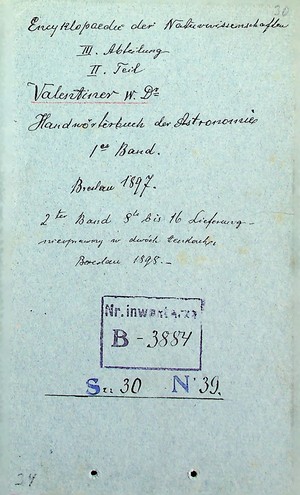 30
Encyklopaedie der Naturwissenschaften
III. Abteilung
II. Teil
Valentiner W. Dr
Handwörterbuch der Astronomie
1er Band.
Breslau 1897.
2ter Band 8te bis 16 Lieferung
nieoprawny w dwóch
Breslau 1898.
Nr. inwentarza
B - 3884
Sz 30 N 39.
34